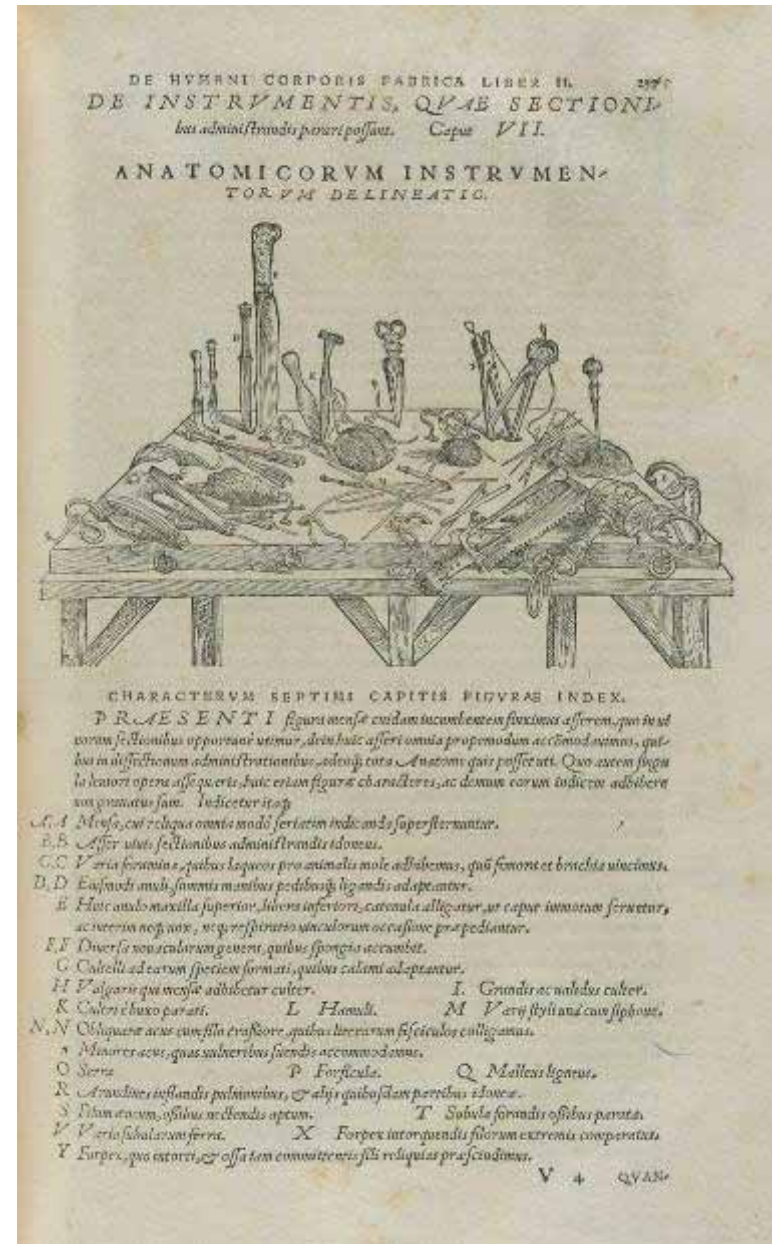 DE HVMANI CORPORIS FABRICA LIBER II.
DE INSTRVMENTIS, QVAE SECTIONI-
bus administrandis parari possunt. Caput VII.
ANATOMICORVM INSTRVMEN-
TORVM DELINEATIO.
CHARACTERVM SEPTIMI CAPITIS FIGVRAE INDEX.
PRAESENTI figura mensæ cuidam incumbentem finximus asserem, quo in ui
uorum sectionibus opportunè utimur, dein huic asseri omnia propemodum accõmodauimus, qui-
bus in dissectionum administrationibus, adeoq; tota Anatome quis posset uti. Quo autem singu
la leuiori opera assequeris, huic etiam figuræ characteres, ac demum eorum indicem adhibere
non grauatus sum. Indicetur itaq;
A, A Mensa, cui reliqua omnia modò seriatim indicanda supersternuntur.
B, B Asser uiuis sectionibus administrandis idoneus.
C, C Varia foramina, quibus laqueos pro animalis mole adhibemus, quũ femora et brachia uincimus.
D, D Eiusmodi anuli, summis manibus pedibusq; ligandis adaptantur.
E Huic anulo maxilla superior, libera inferiori, catenula alligatur, ut caput immotum seruetur,
ac interim neq; uox, neq; respiratio uinculorum occasione præpediantur.
F, F Diuersa nouacularum genera, quibus spongia accumbit.
G Cultelli ad earum speciem formati, quibus calami adaptantur.
H Vulgaris qui mensæ adhibetur culter. I. Grandis ac ualidus culter.
K Cultri è buxo parati. L Hamuli. M Varij styli unà cum siphone.
N, N Obliquatæ acus cum filo crassiore, quibus literarum fasciculos colligamus.
Minores acus, quas uulneribus suendis accommodamus.
O Serra P Forficula. Q Malleus ligneus.
R Arundines inflandis pulmonibus, & alijs quibusdam partibus idoneæ.
S Filum æneum, ossibus nectendis aptum. T Subula forandis ossibus parata.
V Varia subularum ferra. X Forpex intorquendis filorum extremis comparatus.
Y Forpex, quo intorti, & ossa iam committentis fili reliquias præscindimus.
V 4 QVAN-